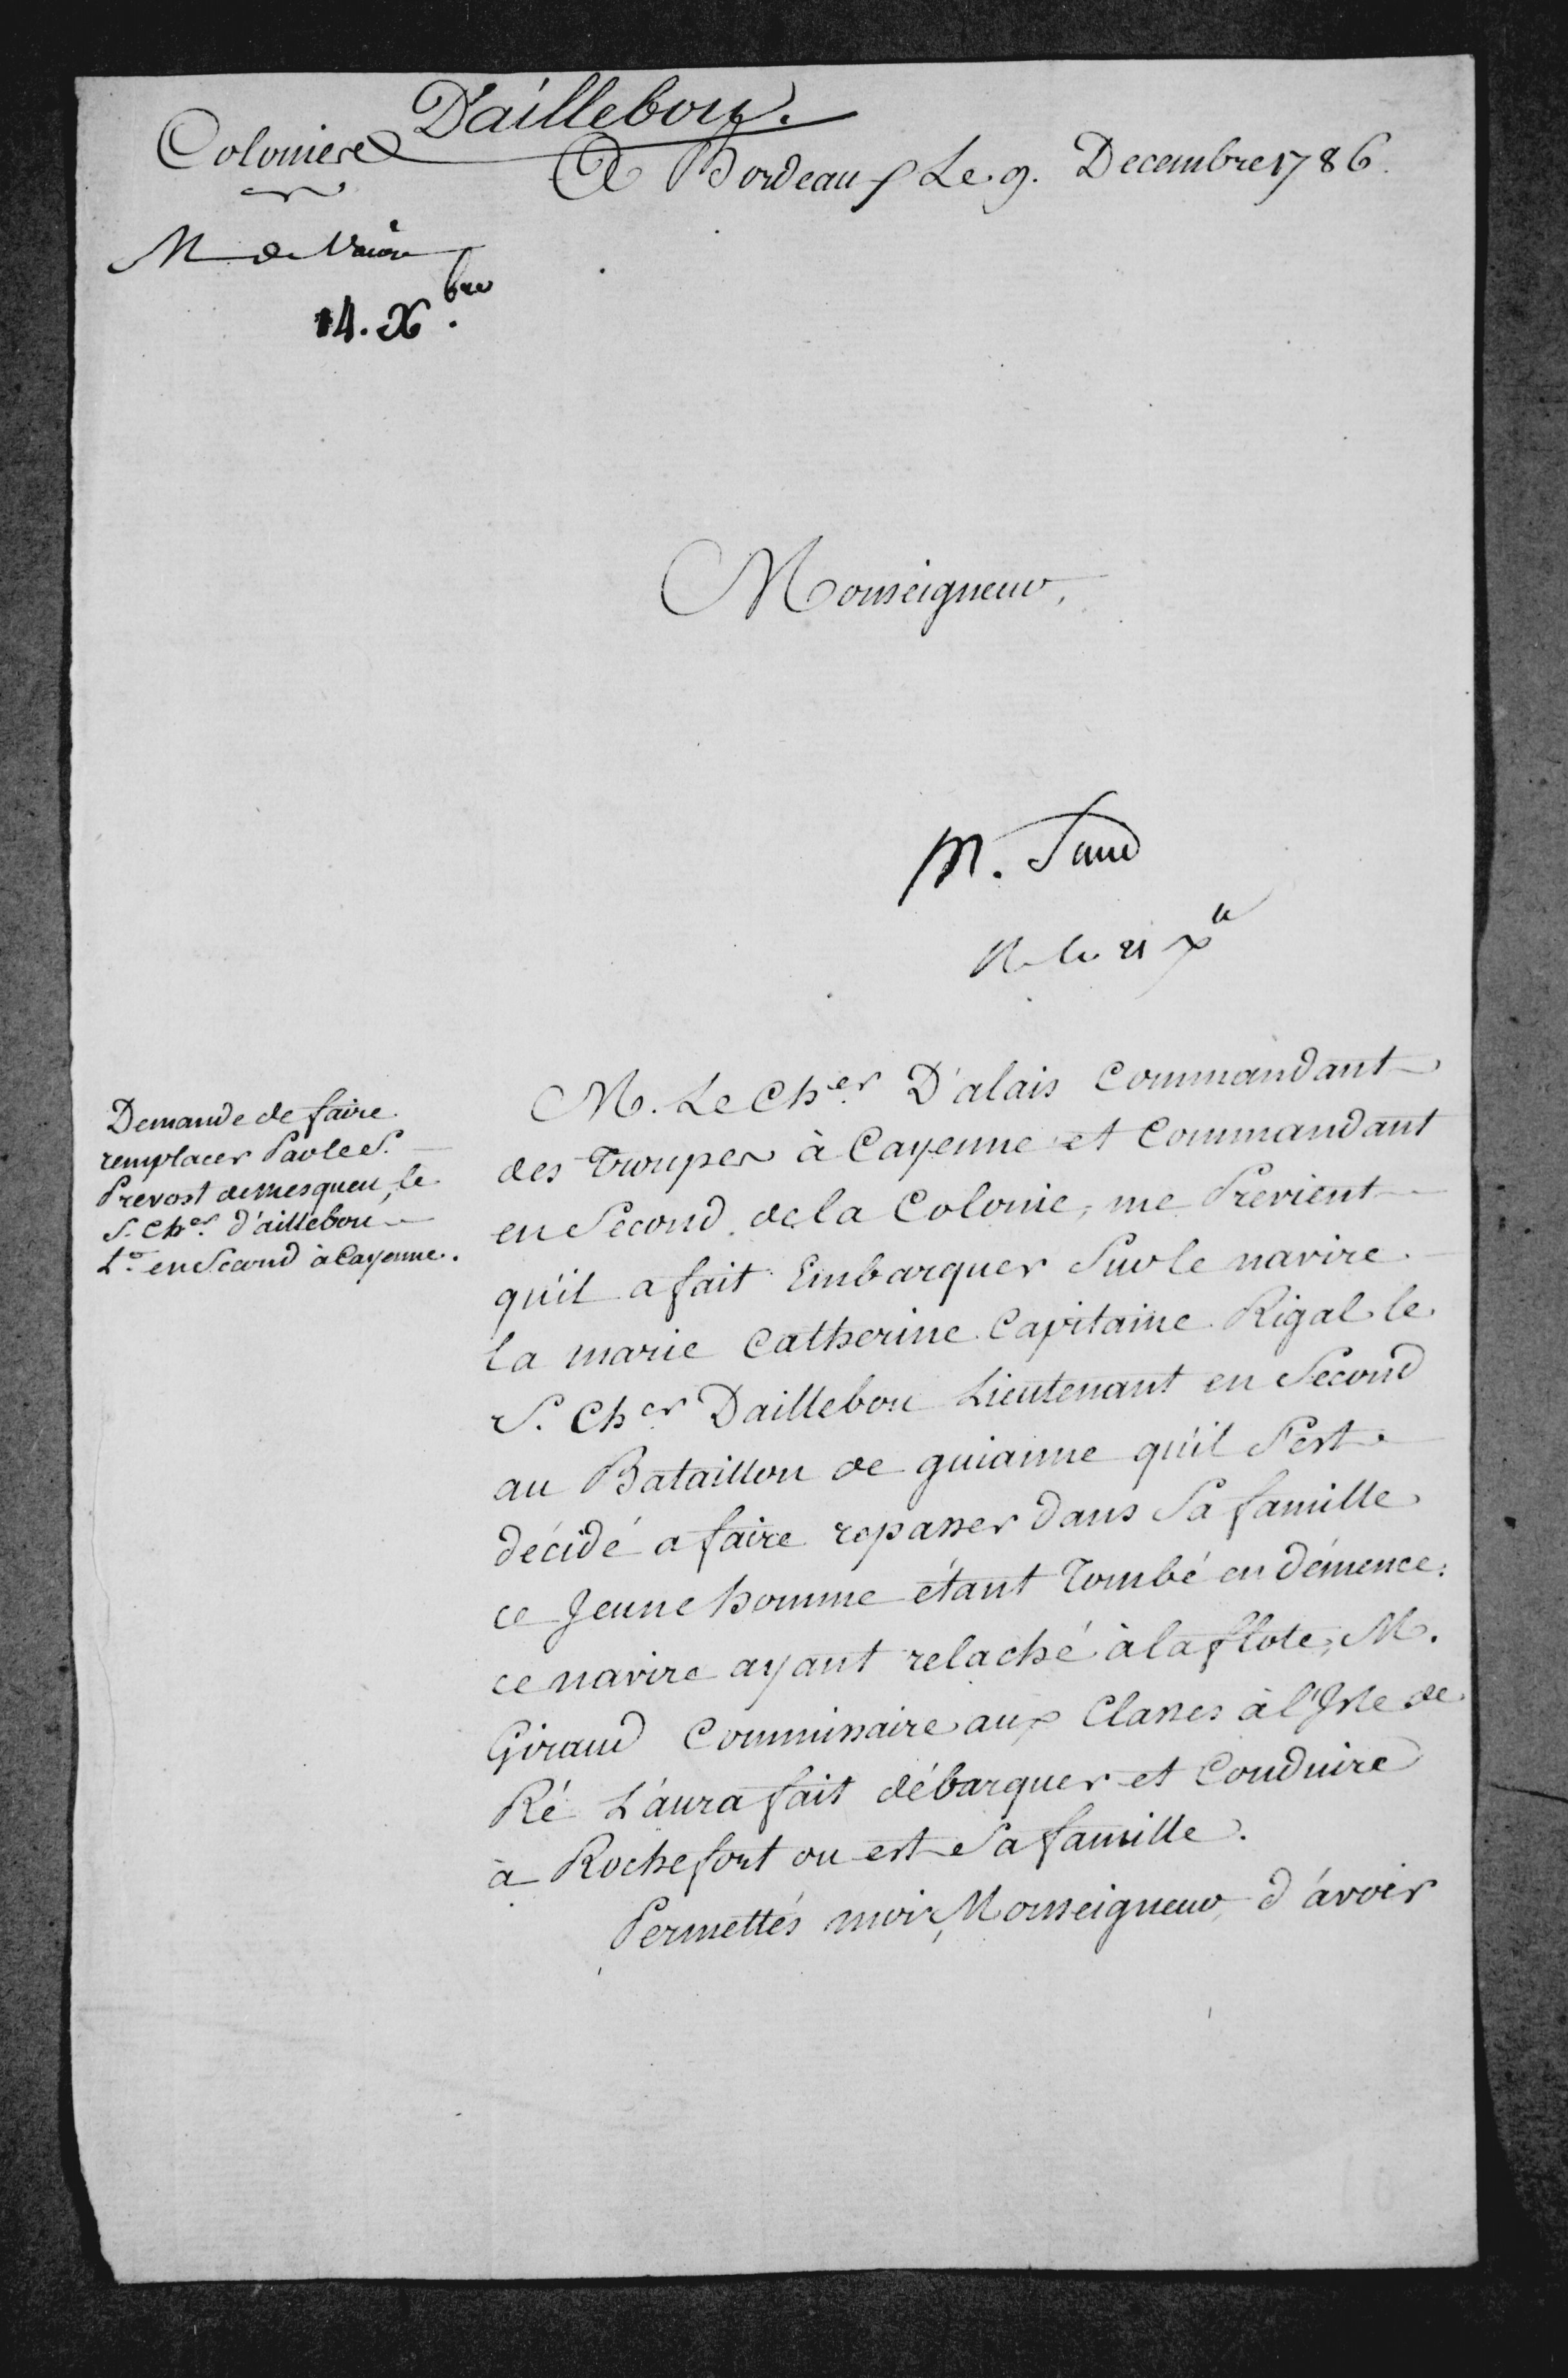 D'aillebou.
Colonies
A Bordeaux Le 9. Decembre 1786.
M de Vaivre
14. X.bre
Monseigneur,
M.
R le 21 Xbre
Demande de faire
remplacer Par le S.
Prevost demesqueu, le
S. Cher. d'aillebou
Lt. en Second à Cayenne.
M. Le Cher. D'alais Commandant
des Troupes à Cayenne et Commandant
en Second de la Colonie, me Prévient
qu'il a fait Embarquer Sur le navire
la marie Catherine Capitaine Rigal le
S. Cher Daillebou Lieutenant en Second
au Bataillon de guianne qu'il S'est
décidé a faire repasser dans Sa famille
ce Jeune homme étant Tombé en démence:
ce navire ayant relaché à la flote, M.
Giraud Commissaire aux Classes à l'Isle de
Ré L'aura fait débarquer et Conduire
à Rochefort ou est Sa famille.
Permettés moi, Monseigneur, d'avoir